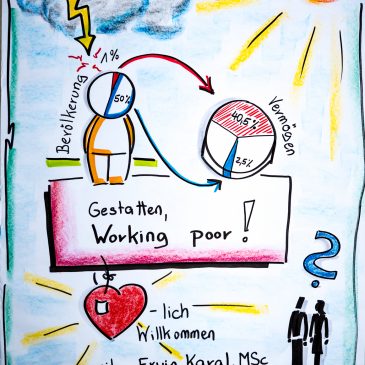 1%
Bevölkerung
50%
40,5%
2,5%
Vermögen
Gestatten,
Working poor!
- lich
Willkommen
Erwin Karal, MSc
?